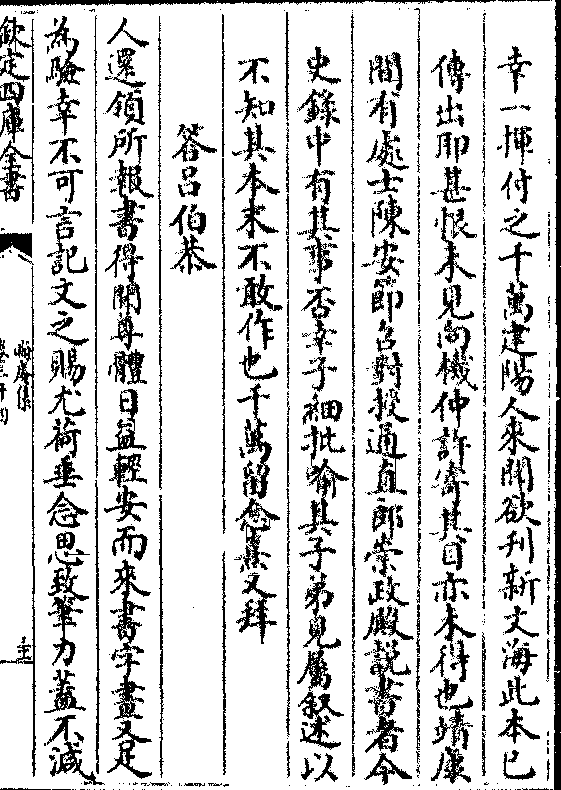 幸一揮付之千萬建陽人來聞欲刋新文海此本已
傳出耶甚恨未見尚機仲許寄其目亦未得也靖康
間有處士陳安節召對授通直郎崇政殿説書者今
史錄中有其事否幸子細批喻其子弟見屬叙述以
不知其本末不敢作也千萬留念熹又拜
答吕伯恭
人還領所報書得聞尊體日益輕安而來書字畫又足
為驗幸不可言記文之賜尤荷垂念思致筆力蓋不減
欽定四庫全書
晦庵集
卷三十四